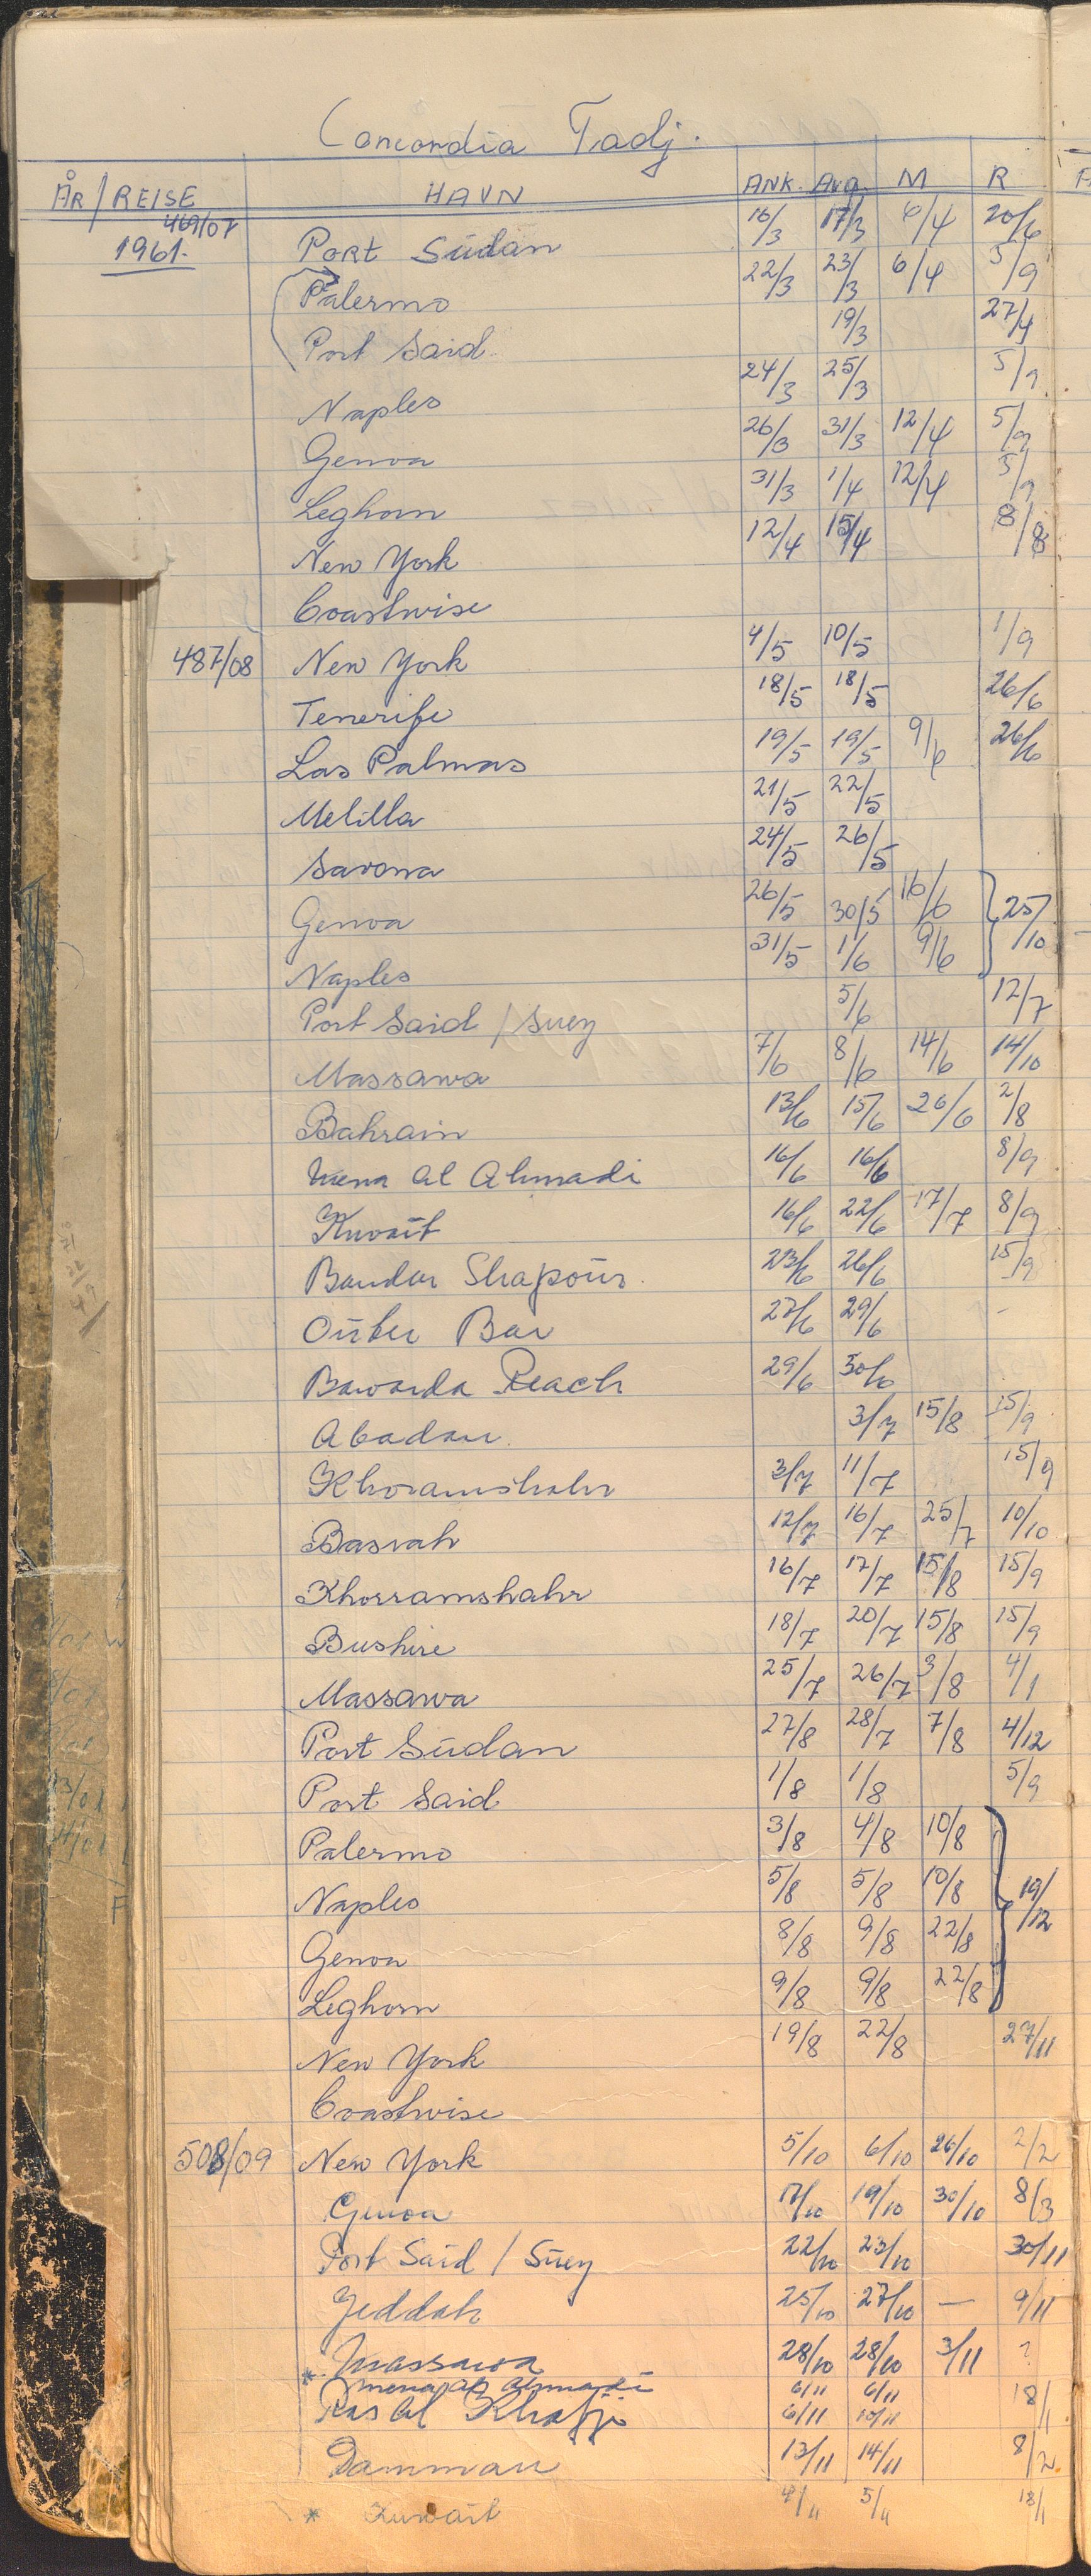 Concordia Tadj.
ÅR / REISE HAVN ANK. Avg. M R
469/07
1961. Port Sudan 16/3 17/3 6/4 20/6
Palermo 22/3 23/3 6/4 5/9
Port Said 19/3 27/4
Naples 24/3 25/3 5/9
Genoa 26/3 31/3 12/4 5/9
Leghorn 31/3 1/4 12/4 5/9
New York 12/4 15/4 8/8
Coastwise
487/08 New York 4/5 10/5 1/9
Tenerife 18/5 18/5 26/6
Las Palmas 19/5 19/5 9/6 26/6
Melilla 21/5 22/5
Savona 24/5 26/5
Genoa 26/5 30/5 16/6 25/10
Naples 31/5 1/6 9/6
Port Said / Suez 5/6 12/7
Massawa 7/6 8/6 14/6 14/10
Bahrain 13/6 15/6 26/6 2/8
Mena al Ahmadi 16/6 16/6 8/9
Kuwait 16/6 22/6 17/7 8/9
Bandar Shapour 23/6 26/6 15/9
Outer Bar 27/6 29/6 -
Bawarda Reach 29/6 30/6
Abadan 3/7 15/8 15/9
Khoramshahr 3/7 11/7 15/9
Basrah 12/7 16/7 25/7 10/10
Khorramshahr 16/7 17/7 15/8 15/9
Bushire 18/7 20/7 15/8 15/9
Massawa 25/7 26/7 3/8 4/1
Port Sudan 27/8 28/7 7/8 4/12
Port Said 1/8 1/8 5/9
Palermo 3/8 4/8 10/8
Naples 5/8 5/8 10/8 19/12
Genoa 8/8 9/8 22/8
Leghorn 9/8 9/8 22/8
New York 19/8 22/8 27/11
Coastwise
508/09 New York 5/10 6/10 26/10 2/2
Genoa 17/10 19/10 30/10 8/3
Port Said / Suez 22/10 23/10 30/11
Jeddah 25/10 27/10 — 9/11
Massawa 28/10 28/10 3/11 ?
* Mena al Ahmadi 6/11 6/11
Ras al Khafji 6/11 10/11 18/1
Damman 13/11 14/11 8/2
* Kuwait 4/11 5/11 18/1